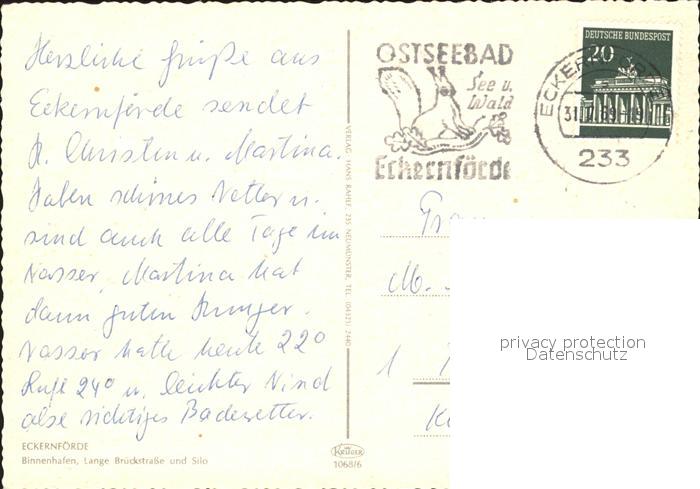 Herzliche Grüße aus
Eckernförde sendet
Christen u. Martina.
Haben schönes Wetter u.
sind auch alle Tage im
Wasser, Martina hat
dann guten Hunger.
Wasser hatte heute 22°
Luft 24° u. leichter Wind
also richtiges Badewetter.
ECKERNFÖRDE
Binnenhafen, Lange Brückstraße und Silo
VERLAG HANS KAHLF, 235 NEUMÜNSTER, TEL. (04321) 7440
KRÜGER
1068/6
OSTSEEBAD
See u.
Wald
Eckernförde
DEUTSCHE BUNDESPOST
20
233
Frau
M.
privacy protection
Datenschutz
1